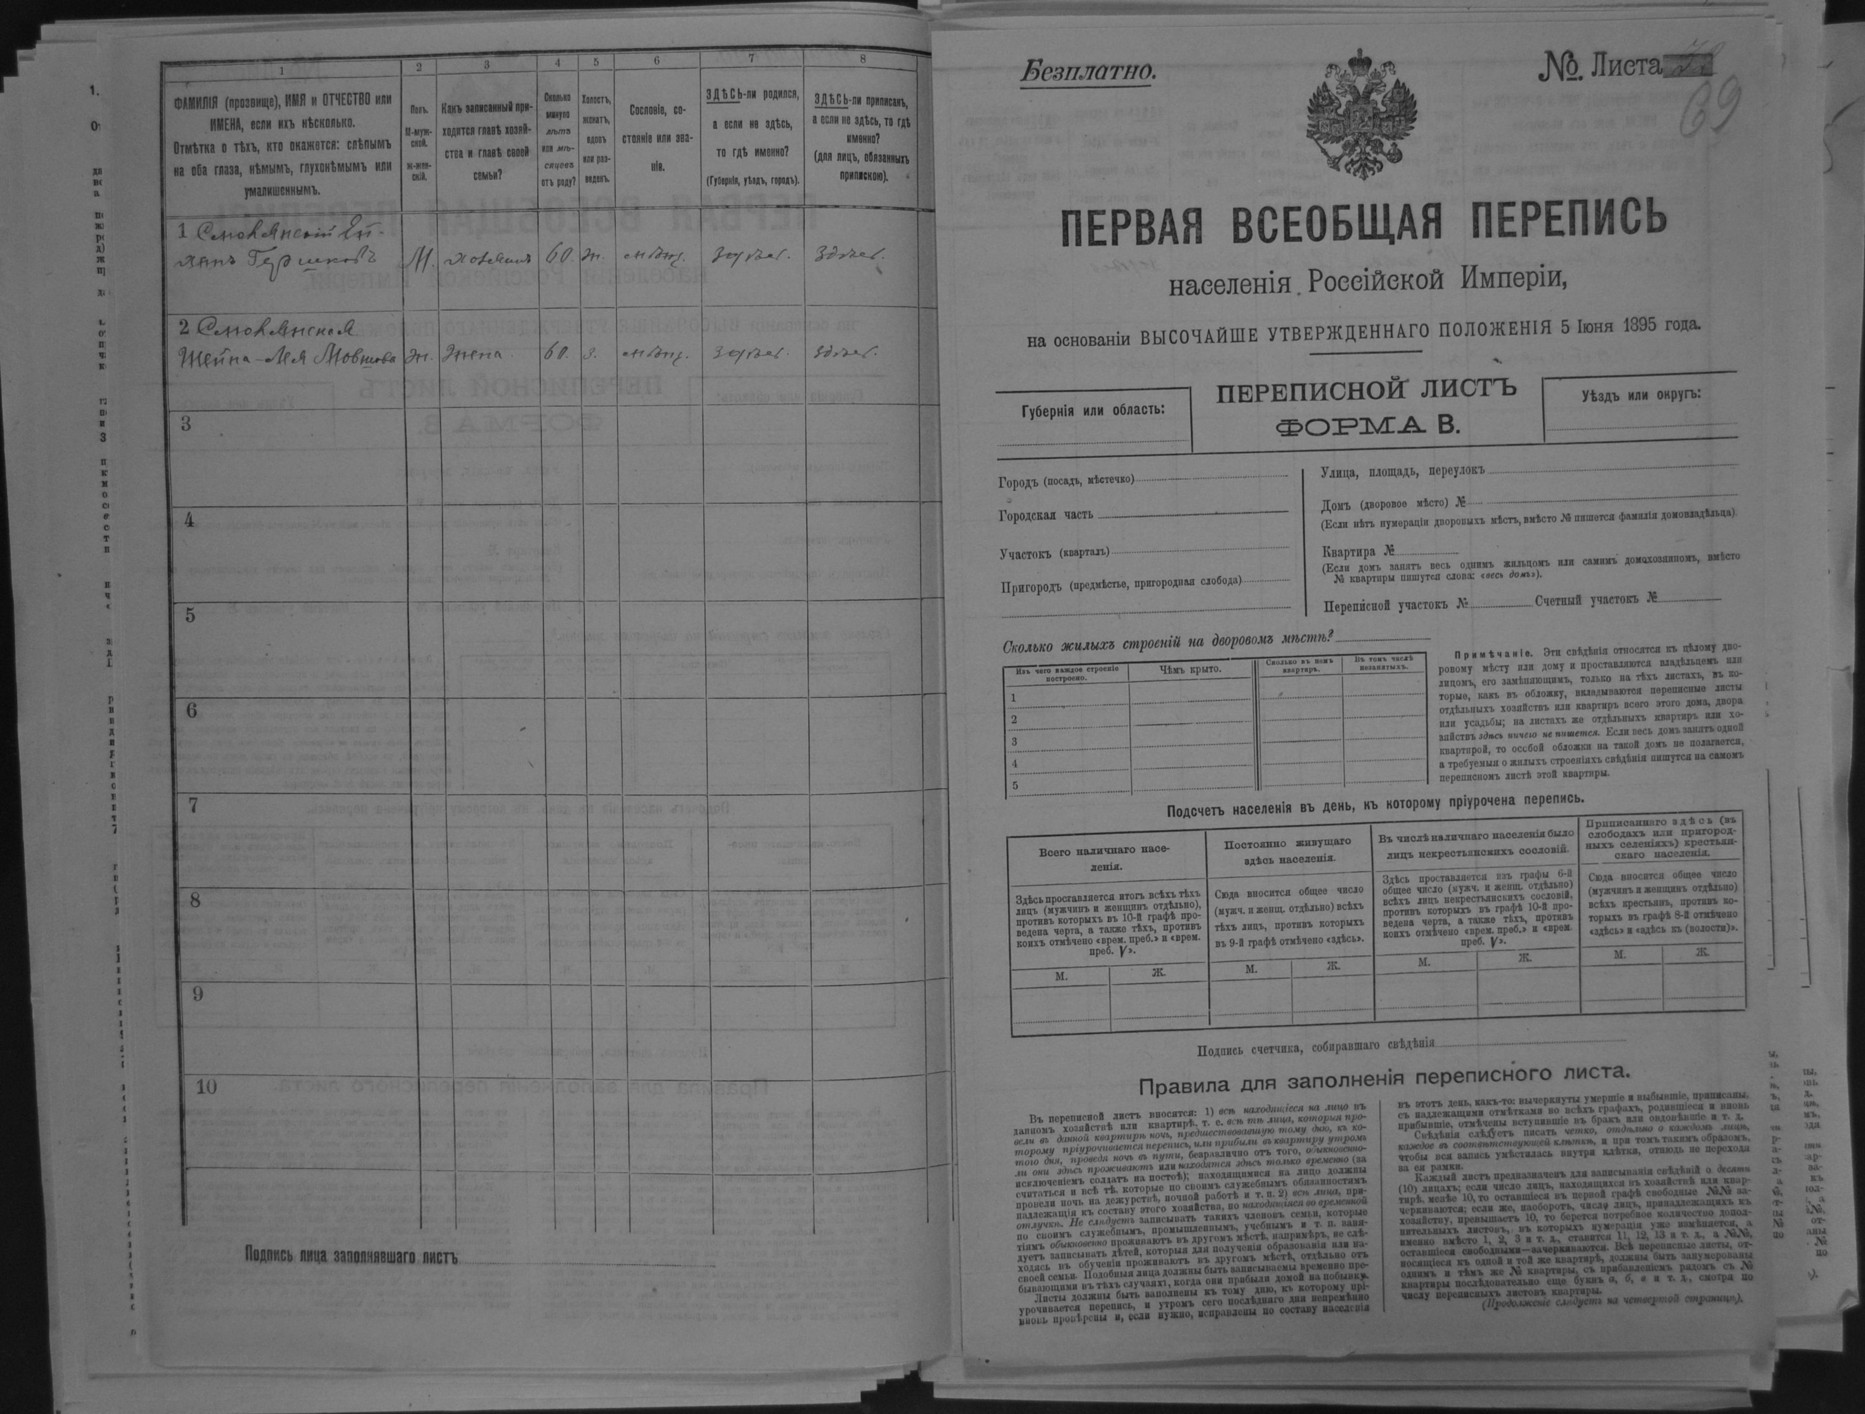 1 2 3 4 5 6 7 8
ФАМИЛІЯ (прозвище), ИМЯ и ОТЧЕСТВО или
ИМЕНА, если ихъ нѣсколько.
Отмѣтка о тѣхъ, кто окажется: слѣпымъ
на оба глаза, нѣмымъ, глухонѣмымъ или
умалишеннымъ.
Полъ.
М-муж-
ской.
ж-жен-
скій.
Какъ записанный при-
ходится главѣ хозяй-
ства и главѣ своей
семьи?
Сколько
минуло
лѣтъ
или мѣ-
сяцевъ
отъ роду?
Холостъ,
женатъ,
вдовъ
или раз-
веденъ.
Сословіе, со-
стояніе или зва-
ніе.
ЗДѢСЬ-ли родился,
а если не здѣсь,
то гдѣ именно?
(Губернія, уѣздъ, городъ).
ЗДѢСЬ-ли приписанъ,
а если не здѣсь, то гдѣ
именно?
(для лицъ, обязанныхъ
припискою).
1
Гершковъ М. 60
2
Шейна-Лея Мовшова ж. жена 60
3
4
5
6
7
8
9
10
Подпись лица заполнявшаго листъ
Безплатно.
№. Листа
69
ПЕРВАЯ ВСЕОБЩАЯ ПЕРЕПИСЬ
населенія Россійской Имперіи,
на основаніи ВЫСОЧАЙШЕ УТВЕРЖДЕННАГО ПОЛОЖЕНІЯ 5 Іюня 1895 года.
Губернія или область:
ПЕРЕПИСНОЙ ЛИСТЪ
ФОРМА В.
Уѣздъ или округъ:
Городъ (посадъ, мѣстечко)
Городская часть
Участокъ (кварталъ)
Пригородъ (предмѣстье, пригородная слобода)
Улица, площадь, переулокъ
Домъ (дворовое мѣсто) №
(Если нѣтъ нумераціи дворовыхъ мѣстъ, вмѣсто № пишется фамилія домовладѣльца)
Квартира №
(Если домъ занятъ весь однимъ жильцомъ или самимъ домохозяиномъ, вмѣсто
№ квартиры пишутся слова: «весь домъ»).
Переписной участокъ № Счетный участокъ №
Сколько жилыхъ строеній на дворовомъ мѣстѣ?
Изъ чего каждое строеніе
построено.
Чѣмъ крыто.
Сколько въ немъ
квартиръ.
Въ томъ числѣ
незанятыхъ.
1
2
3
4
5
Примѣчаніе. Эти свѣдѣнія относятся къ цѣлому дво-
ровому мѣсту или дому и проставляются владѣльцемъ или
лицомъ, его замѣняющимъ, только на тѣхъ листахъ, въ ко-
торые, какъ въ обложку, вкладываются переписные листы
отдѣльныхъ хозяйствъ или квартиръ всего этого дома, двора
или усадьбы; на листахъ же отдѣльныхъ квартиръ или хо-
зяйствъ здѣсь ничего не пишется. Если весь домъ занятъ одной
квартирой, то особой обложки на такой домъ не полагается,
а требуемыя о жилыхъ строеніяхъ свѣдѣнія пишутся на самомъ
переписномъ листѣ этой квартиры.
Подсчетъ населенія въ день, къ которому пріурочена перепись.
Всего наличнаго насе-
ленія.
Здѣсь проставляется итогъ всѣхъ тѣхъ
лицъ (мужчинъ и женщинъ отдѣльно),
противъ которыхъ въ 10-й графѣ про-
ведена черта, а также тѣхъ, противъ
коихъ отмѣчено «врем. преб.» и «врем.
преб. V».
Постоянно живущаго
здѣсь населенія.
Сюда вносится общее число
(мужч. и женщ. отдѣльно) всѣхъ
тѣхъ лицъ, противъ которыхъ
въ 9-й графѣ отмѣчено «здѣсь».
Въ числѣ наличнаго населенія было
лицъ некрестьянскихъ сословій.
Здѣсь проставляется изъ графы 6-й
общее число (мужч. и женщ. отдѣльно)
всѣхъ лицъ некрестьянскихъ сословій,
противъ которыхъ въ графѣ 10-й про-
ведена черта, а также тѣхъ, противъ
коихъ отмѣчено «врем. преб.» и «врем.
преб. V».
Приписаннаго здѣсь (въ
слободахъ или пригород-
ныхъ селеніяхъ) крестьян-
скаго населенія.
Сюда вносится общее число
(мужчинъ и женщинъ отдѣльно)
всѣхъ крестьянъ, противъ ко-
торыхъ въ графѣ 8-й отмѣчено
«здѣсь» и «здѣсь къ (волости)».
М. Ж. М. Ж. М. Ж. М. Ж.
Подпись счетчика, собиравшаго свѣдѣнія
Правила для заполненія переписного листа.
Въ переписной листъ вносятся: 1) всѣ находящіеся на лицо въ
данномъ хозяйствѣ или квартирѣ, т. е. всѣ тѣ лица, которыя про-
вели въ данной квартирѣ ночь, предшествовавшую тому дню, къ ко-
торому пріурочивается перепись, или прибыли въ квартиру утромъ
того дня, проведя ночь въ пути, безразлично отъ того, обыкновенно-
ли они здѣсь проживаютъ или находятся здѣсь только временно (за
исключеніемъ солдатъ на постоѣ); находящимися на лицо должны
считаться и всѣ тѣ, которые по своимъ служебнымъ обязанностямъ
провели ночь на дежурствѣ, ночной работѣ и т. п. 2) всѣ лица, при-
надлежащія къ составу этого хозяйства, но находящіяся во временной
отлучкѣ. Не слѣдуетъ записывать такихъ членовъ семьи, которые
по своимъ служебнымъ, промышленнымъ, учебнымъ и т. п. заня-
тіямъ обыкновенно проживаютъ въ другомъ мѣстѣ, напримѣръ, не слѣ-
дуетъ записывать дѣтей, которыя для полученія образованія или на-
ходясь въ обученіи проживаютъ въ другомъ мѣстѣ, отдѣльно отъ
своей семьи. Подобныя лица должны быть записываемы временно пре-
бывающими въ тѣхъ случаяхъ, когда они прибыли домой на побывку.
Листы должны быть заполнены къ тому дню, къ которому прі-
урочивается перепись, и утромъ сего послѣдняго дня непремѣнно
вновь провѣрены и, если нужно, исправлены по составу населенія
въ этотъ день, какъ-то: вычеркнуты умершіе и выбывшіе, приписаны,
съ надлежащими отмѣтками во всѣхъ графахъ, родившіеся и вновь
прибывшіе, отмѣчены вступившіе въ бракъ или овдовѣвшіе и т. д.
Свѣдѣнія слѣдуетъ писать четко, отдѣльно о каждомъ лицѣ,
каждое въ соотвѣтствующей клѣткѣ, и при томъ такимъ образомъ,
чтобы вся запись умѣстилась внутри клѣтки, отнюдь не переходя
за ея рамки.
Каждый листъ предназначенъ для записыванія свѣдѣній о десяти
(10) лицахъ; если число лицъ, находящихся въ хозяйствѣ или квар-
тирѣ, менѣе 10, то оставшіеся въ первой графѣ свободные №№ за-
черкиваются; если же, наоборотъ, число лицъ, принадлежащихъ къ
хозяйству, превышаетъ 10, то берется потребное количество допол-
нительныхъ листовъ, въ которыхъ нумерація уже измѣняется, а
именно вмѣсто 1, 2, 3 и т. д., ставится 11, 12, 13 и т. д., а №№,
оставшіеся свободными—зачеркиваются. Всѣ переписные листы, от-
носящіеся къ одной и той же квартирѣ, должны быть занумерованы
однимъ и тѣмъ же № квартиры, съ прибавленіемъ рядомъ съ №
квартиры послѣдовательно еще буквъ а, б, в и т. д., смотря по
числу переписныхъ листовъ квартиры.
(Продолженіе слѣдуетъ на четвертой страницѣ).